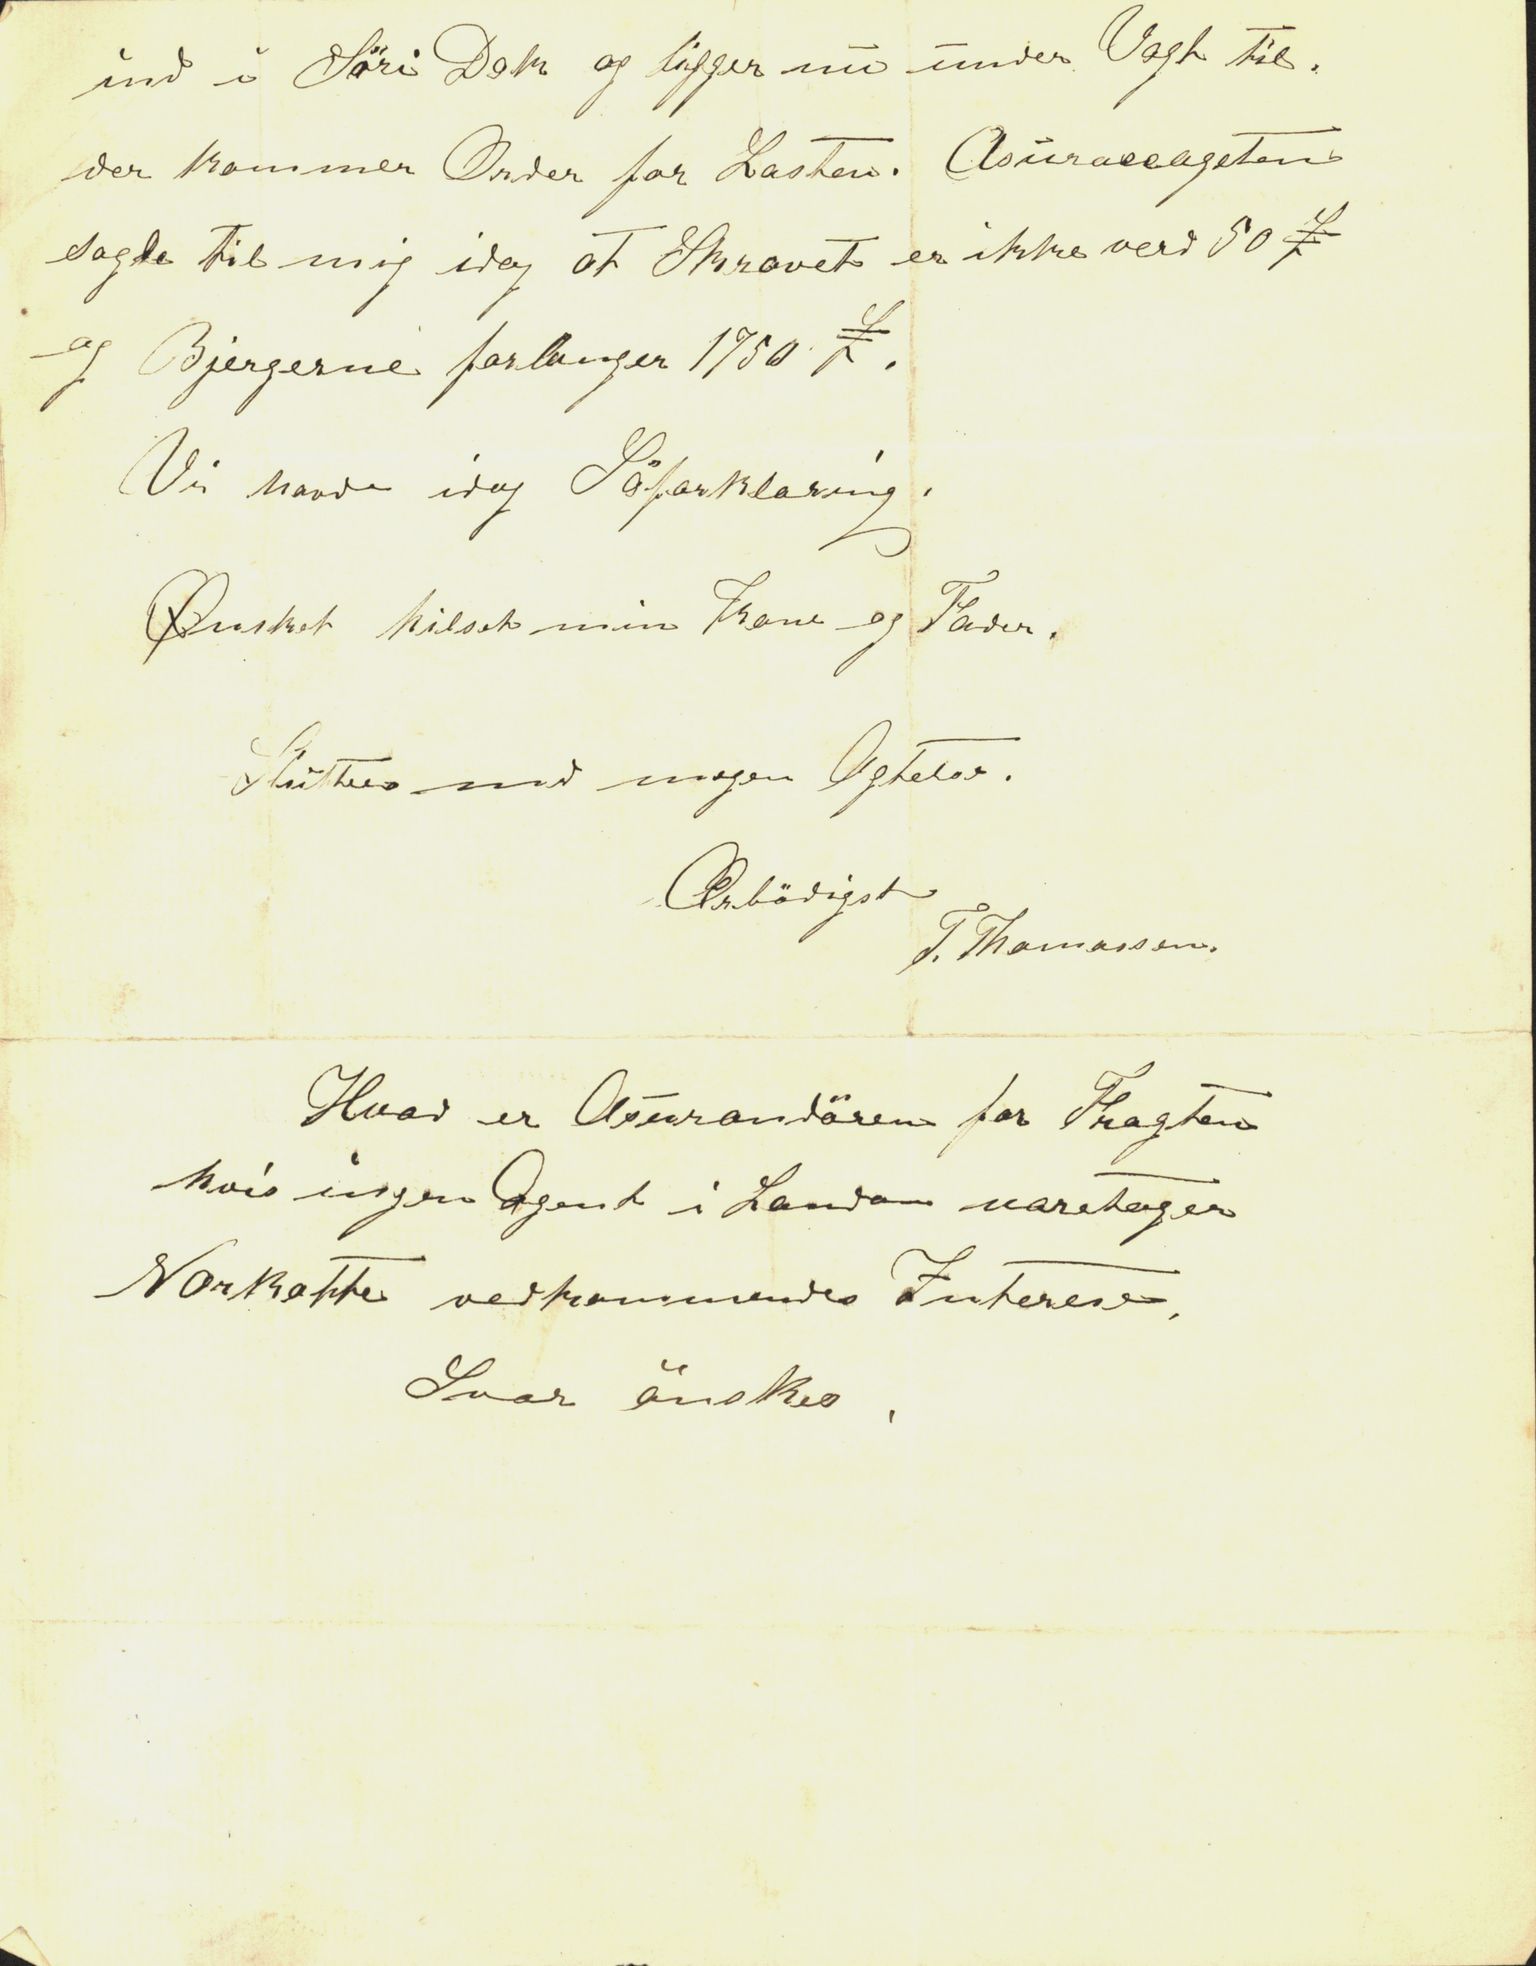 ind i Söri Dok og ligger nu under Vagt til.
der kommer Order for Lasten. Asuraceageten
sagde til mig idag at Skravet er ikke verd 50 £
og Bjergerne forlanger 1750 £.
Vi havde idag Söforklaring.
Ønsket hilset min Kone og Fader.
Sluttes med megen Agtelse.
Ærbödigst
T. Thomassen.
Hvad er Asurandören for Fragten
hvis ingen Agent i London varetager
vedkommendes Interese.
Svar önskes.